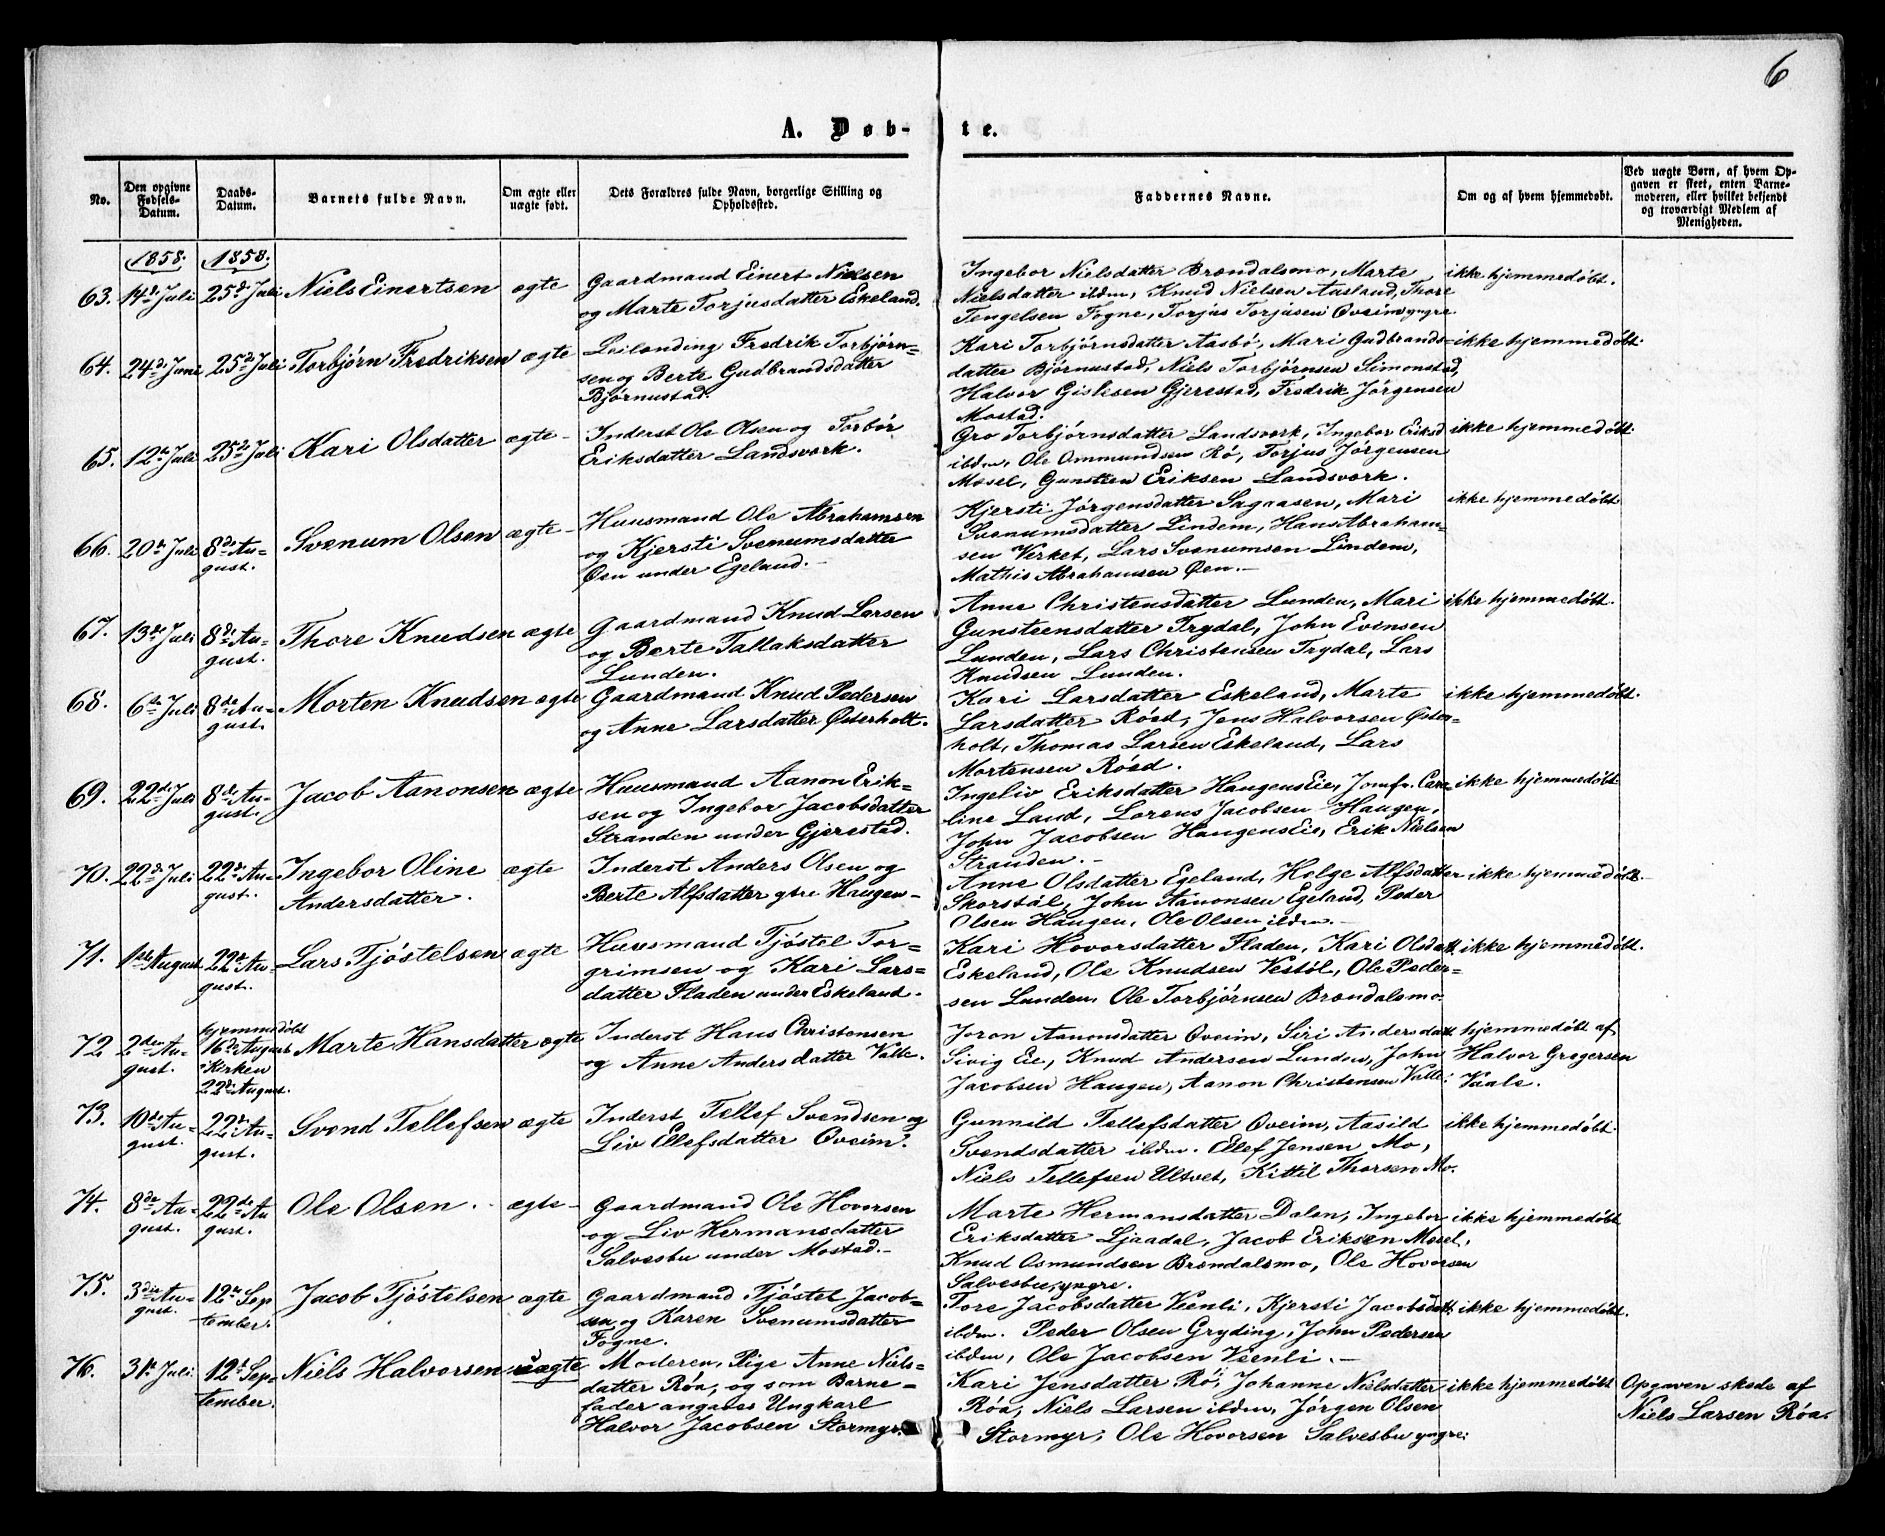 6
A. Døb-te.
No.
Den opgivne Fødsels-Datum.
Daabs-Datum.
Barnets fulde Navn.
Om ægte eller uægte født.
Dets Forældres fulde Navn, borgerlige Stilling og Opholdssted.
Faddernes Navne.
Om og af hvem hjemmedøbt.
Ved uægte Børn, af hvem Opgaven er skeet, enten Barnemoderen, eller hvilket bekjendt og troværdigt Medlem af Menigheden.
1858. 1858.
63. 14de Juli 25de Juli Niels Einertsen ægte
Gaardmand Einert Nielsen
og Marte Torjusdatter Eskeland.
Ingebor Nielsdatter Brøndalsmo, Marte
Nielsdatter ibdm, Knud Nielsen Aasland, Thore
Tengelsen Fogne, Torjus Torjusen Oveim yngre.
ikke hjemmedøbt.
64. 24de Juni 25de Juli Torbjørn Fredriksen ægte
Leilænding Fredrik Torbjørn-
sen og Berte Gudbrandsdatter
Bjørnustad.
Kari Torbjørnsdatter Aasbø, Mari Gudbrands-
datter Bjørnustad, Niels Torbjørnsen Simonstad,
Halvor Gislesen Gjerestad, Fredrik Jørgensen
Mostad.
ikke hjemmedøbt.
65. 12te Juli 25de Juli Kari Olsdatter ægte-
Inderst Ole Olsen og Torbør
Eriksdatter Landsverk.
Gro Torbjørnsdatter Landsverk, Ingebor Eriksd
ibdm, Ole Ommundsen Rø, Torjus Jørgensen
Mosel, Gunsten Eriksen Landsverk.
ikke hjemmedøbt.
66. 20de Juli 8de Au-
gust. Svenum Olsen ægte-
Huusmand Ole Abrahamsen
og Kjersti Svenumsdatter
Øen under Egeland.-
Kjersti Jørgensdatter Sagaasen, Mari
Svenumsdatter Lindem, Hans Abraham-
sen Verket, Lars Svenumsen Lindem,
Mathis Abrahamsen Øen.-
ikke hjemmedøbt
67. 13de Juli 8de Au-
gust. Thore Knudsen ægte
Gaardmand Knud Larsen
og Berte Tallaksdatter
Lunden.
Anne Christensdatter Lunden, Mari
Gunsteensdatter Trydal, John Evinsen
Lunden, Lars Christensen Trydal, Lars
Knudsen Lunden.
ikke hjemmedøbt.
68. 6te Juli 8de Au-
gust. Morten Knudsen ægte
Gaardmand Knud Pedersen
og Anne Larsdatter Østerholt.
Kari Larsdatter Eskeland, Marte
Larsdatter Røed, Jens Halvorsen Øster-
holt, Thomas Larsen Eskeland, Lars
Mortensen Røed.
ikke hjemmedøbt.
69. 22de Juli 8de Au-
gust. Jacob Aanonsen ægte
Huusmand Aanon Erik-
sen og Ingebor Jacobsdatter
Stranden under Gjerestad.
Ingeliv Eriksdatter HaugensEie, Jomfr. Caro-
line Lund, Lorens Jacobsen Haugen,
John Jacobsen HaugensEie, Erik Nielsen
Stranden.-
ikke hjemmedøbt
70. 22de Juli 22de Au-
gust. Ingebor Oline
Andersdatter. ægte
Inderst Anders Olsen og
Berte Alfsdatter Haugen-
Anne Olsdatter Egeland, Helge Alfsdatter
Skorstøl, John Aanonsen Egeland, Peder
Olsen Haugen, Ole Olsen ibdm.-
ikke hjemmedøbt.-
71. 1ste August 22de Au-
gust. Lars Tjøstelsen ægte
Huusmand Tjøstel Tor-
grimsen og Kari Lars-
datter Fladen under Eskeland.
Kari Hovorsdatter Fladen, Kari Olsdatt.
Eskeland, Ole Knudsen Vestøl, Ole Peder-
sen Lunden, Ole Torbjørnsen Brøndalsmo
ikke hjemmedøbt.
72 2den Au-
gust. hjemmedøbt
16de August
Kirken
22de August. Marte Hansdatter ægte
Inderst Hans Christensen
og Anne Andersdatter Valle.
Joron Aanonsdatter Oveim, Siri Andersdatt
Sivig Eie, Knud Andersen Lunden, John
Jacobsen Haugen, Aanon Christensen Valle:
hjemmedøbt af
Halvor Gregersen
Vaale.
73. 10de Au-
gust. 22de Au-
gust. Svend Tellefsen ægte
Inderst Tellef Svendsen og
Liv Ellefsdatter Oveim.
Gunnild Tellefsdatter Oveim, Aasild
Svendsdatter ibdm. Ellef Jensen Mo,
Niels Tellefsen Ultvet, Kittil Thorsen Mo.
ikke hjemmedøbt.
74. 8de Au-
gust. 22de Au
gust. Ole Olsen. ægte-
Gaardmand Ole Hovorsen
og Liv Hermansdatter
Salvesbu under Mostad.-
Marte Hermansdatter Dalen, Ingebor
Eriksdatter Ljaadal, Jacob Eriksen Mosel,
Knud Osmundsen Brøndalsmo, Ole Hovorsen
Salvesbu, yngre.
ikke hjemmedøbt
75. 3die Au-
gust. 12te Sep
tember. Jacob Tjøstelsen ægte
Gaardmand Tjøstel Jacob-
sen og Karen Svenumsdatter
Fogne.
Tore Jacobsdatter Veenli, Kjersti Jacobsdatt.
ibdm. Peder Olsen Gryding, John Pedersen
ibdm, Ole Jacobsen Veenli.-
ikke hjemmedøbt.
76. 31te Juli 12te Sep-
tember. Niels Halvorsen uægte
Moderen, Pige Anne Niels-
datter Røa, og som Barne-
fader angaves Ungkarl
Halvor Jacobsen Stormyr.
Kari Jensdatter Rø, Johanne Nielsdatter
Røa, Niels Larsen ibdm, Jørgen Olsen
Stormyr, Ole Hovorsen Salvesbu yngre:
ikke hjemmedøbt
Opgaven skede af
Niels Larsen Røa.